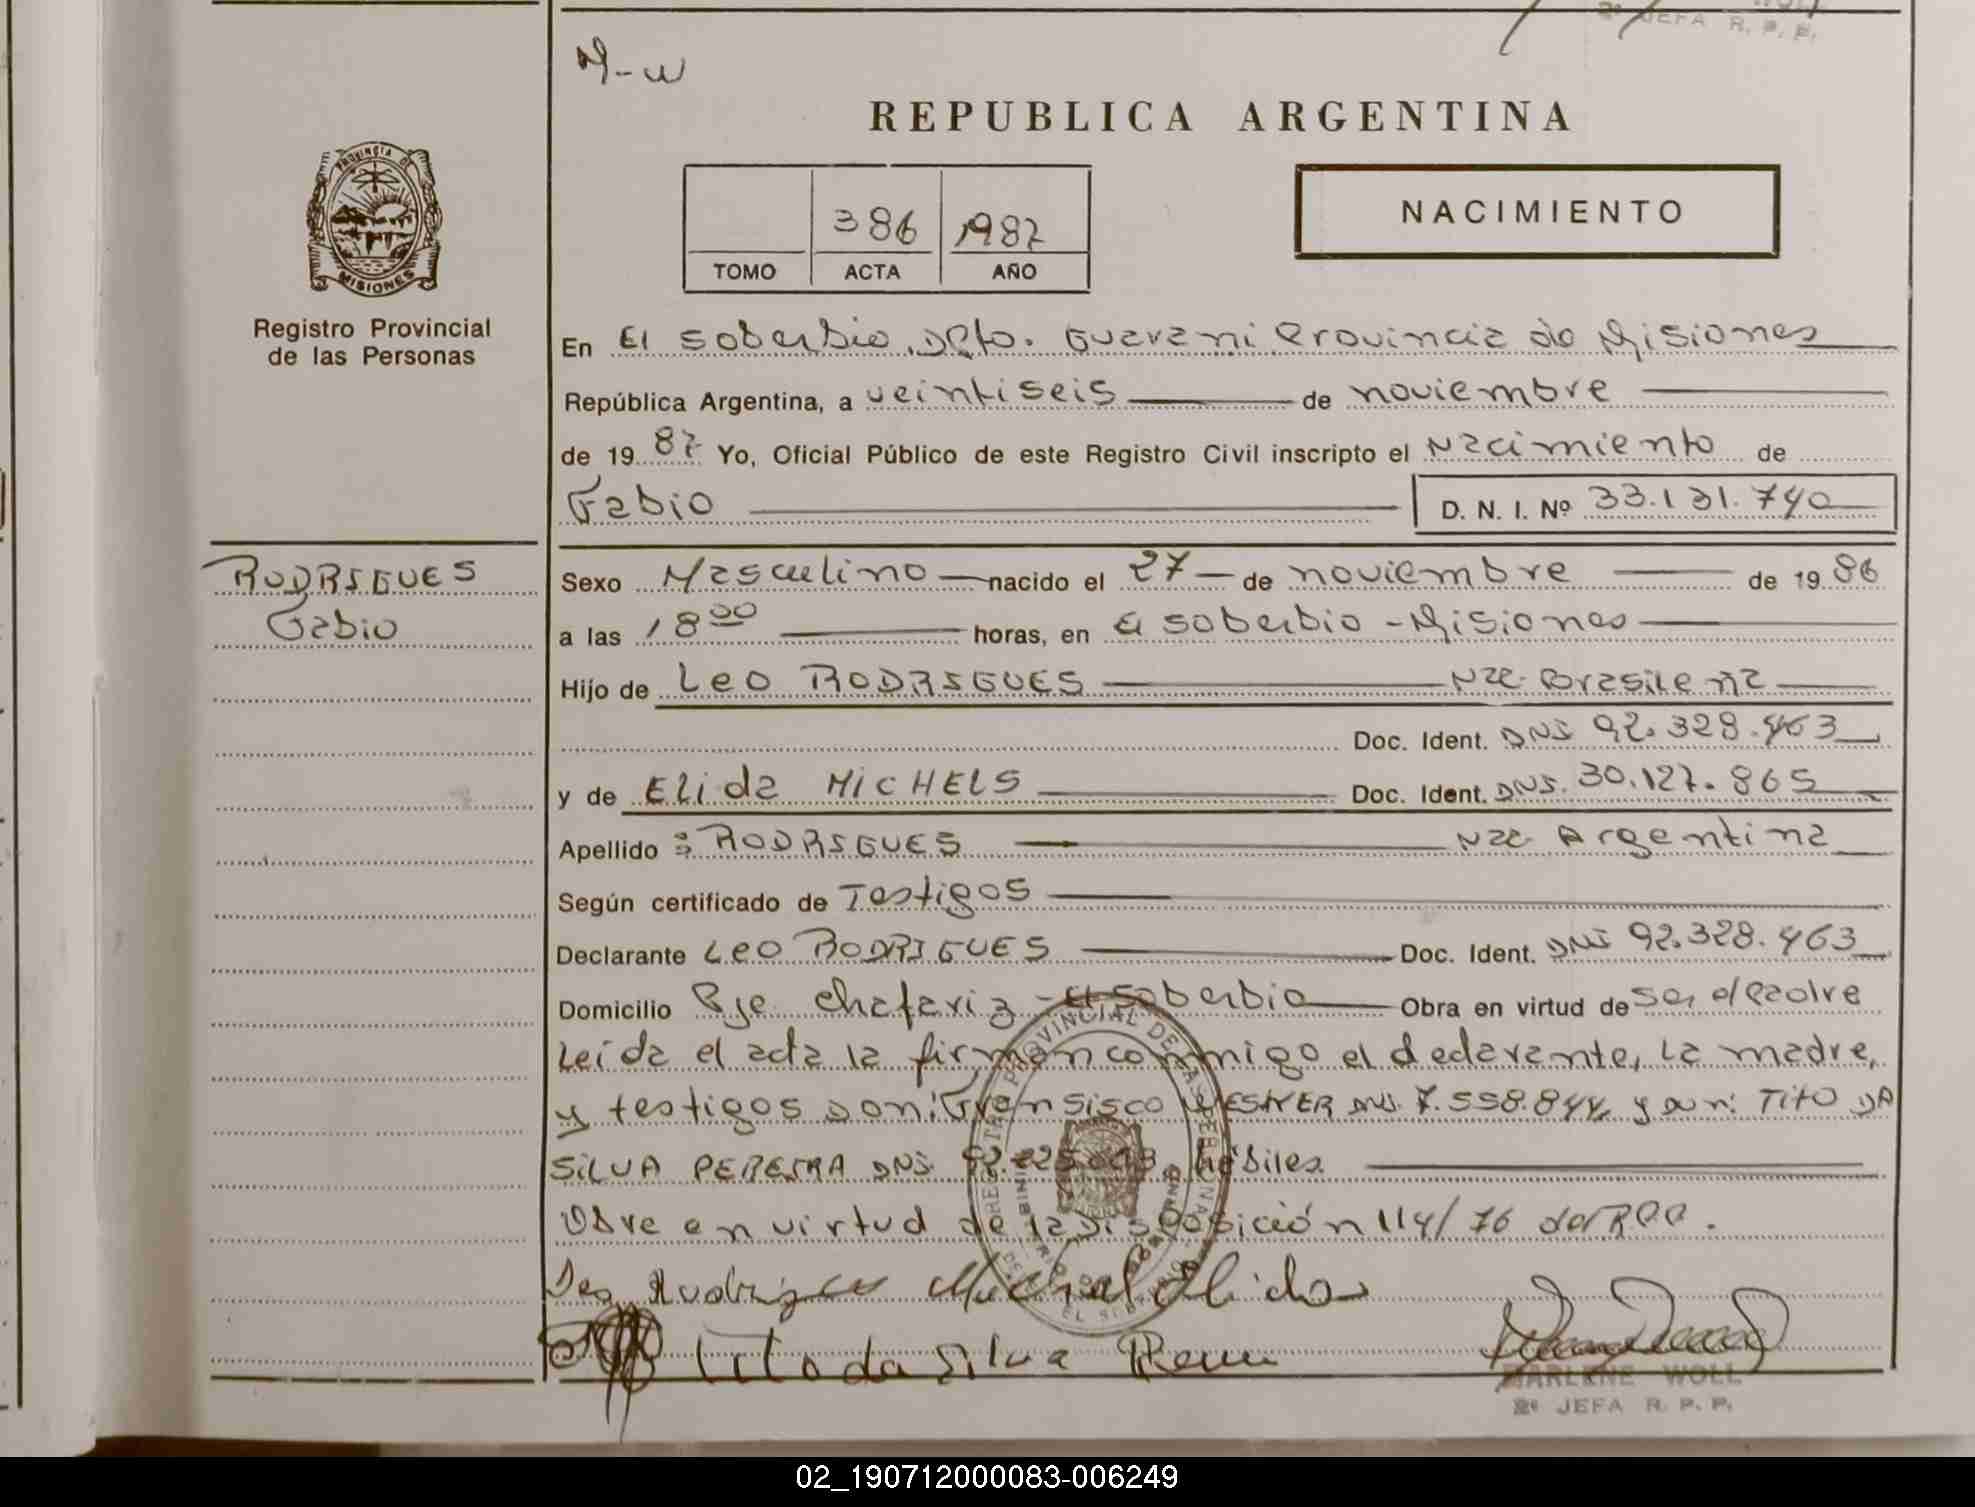 2ª JEFA R. P. P.
M-W
REPUBLICA ARGENTINA
PROVINCIA DE
MISIONES
386 1987
TOMO ACTA AÑO
NACIMIENTO
Registro Provincial
de las Personas
En El Soberbio, Dpto. Guarani Provincia de Misiones
República Argentina, a veintiseis de noviembre
de 19 87 Yo, Oficial Público de este Registro Civil inscripto el Nacimiento de
Fabio D. N. I. Nº 33.131.740
RODRIGUES
Fabio
Sexo Masculino nacido el 27 de noviembre de 19 86
a las 18 00 horas, en El Soberbio - Misiones
Hijo de Leo RODRIGUES Nac. Brasilena
Doc. Ident. DNI 92.328.463
y de Elida MICHELS Doc. Ident. DNI. 30.127.865
Apellido : RODRIGUES Nac. Argentina
Según certificado de Testigos
Declarante Leo RODRIGUES Doc. Ident. DNI 92.328.463
Domicilio Pje. Chafariz - El Soberbio Obra en virtud de ser el padre
Leida el acta la firman conmigo el declarante, la madre,
y testigos don: Fransisco WESNER DNI. 7.558.844 y don: TITO DA
SILVA PEREIRA DNI. hábiles.
Obra en virtud de la Disposición 114/76 del RPP.
Leo Rodrigues Michel Elida
Tito da Silva
MARLENE WOLL
2ª JEFA R. P. P.
02_190712000083-006249